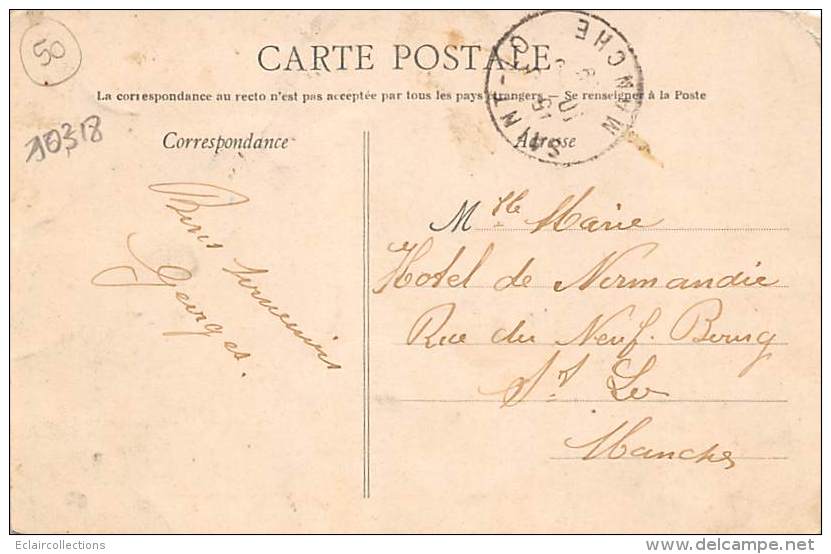 50
CARTE POSTALE
La correspondance au recto n'est pas acceptée par tous les pays étrangers — Se renseigner à la Poste
10318
Correspondance
Bons souvenirs
Georges.
Adresse
SAINT-LO
MANCHE
Mlle Marie
Hotel de Normandie
Rue du Neuf. Bourg
St Lo
Manche
Eclaircollections
www.delcampe.net